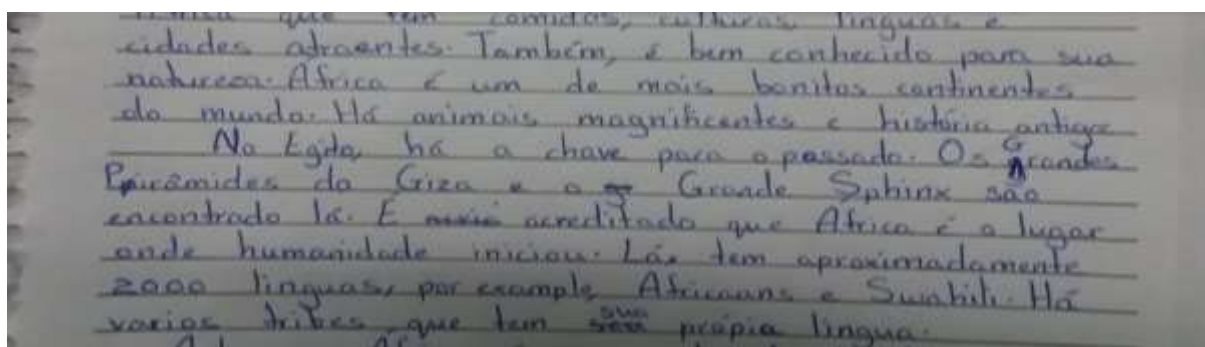 que tem comidas, culturas, linguas e
cidades atraentes. Também, é bem conhecido para sua
natureza. Africa é um de mais bonitos continentes
do mundo. Há animais magnificentes e história antiga
No Egito, há a chave para o passado. Os Grandes
Pirâmides da Giza e o Grande Sphinx são
encontrado lá. É acreditado que Africa é o lugar
onde humanidade iniciou. Lá, tem aproximadamente
2000 linguas, por example, Africaans e Swahili. Há
varios tribes que tem sua própia lingua.